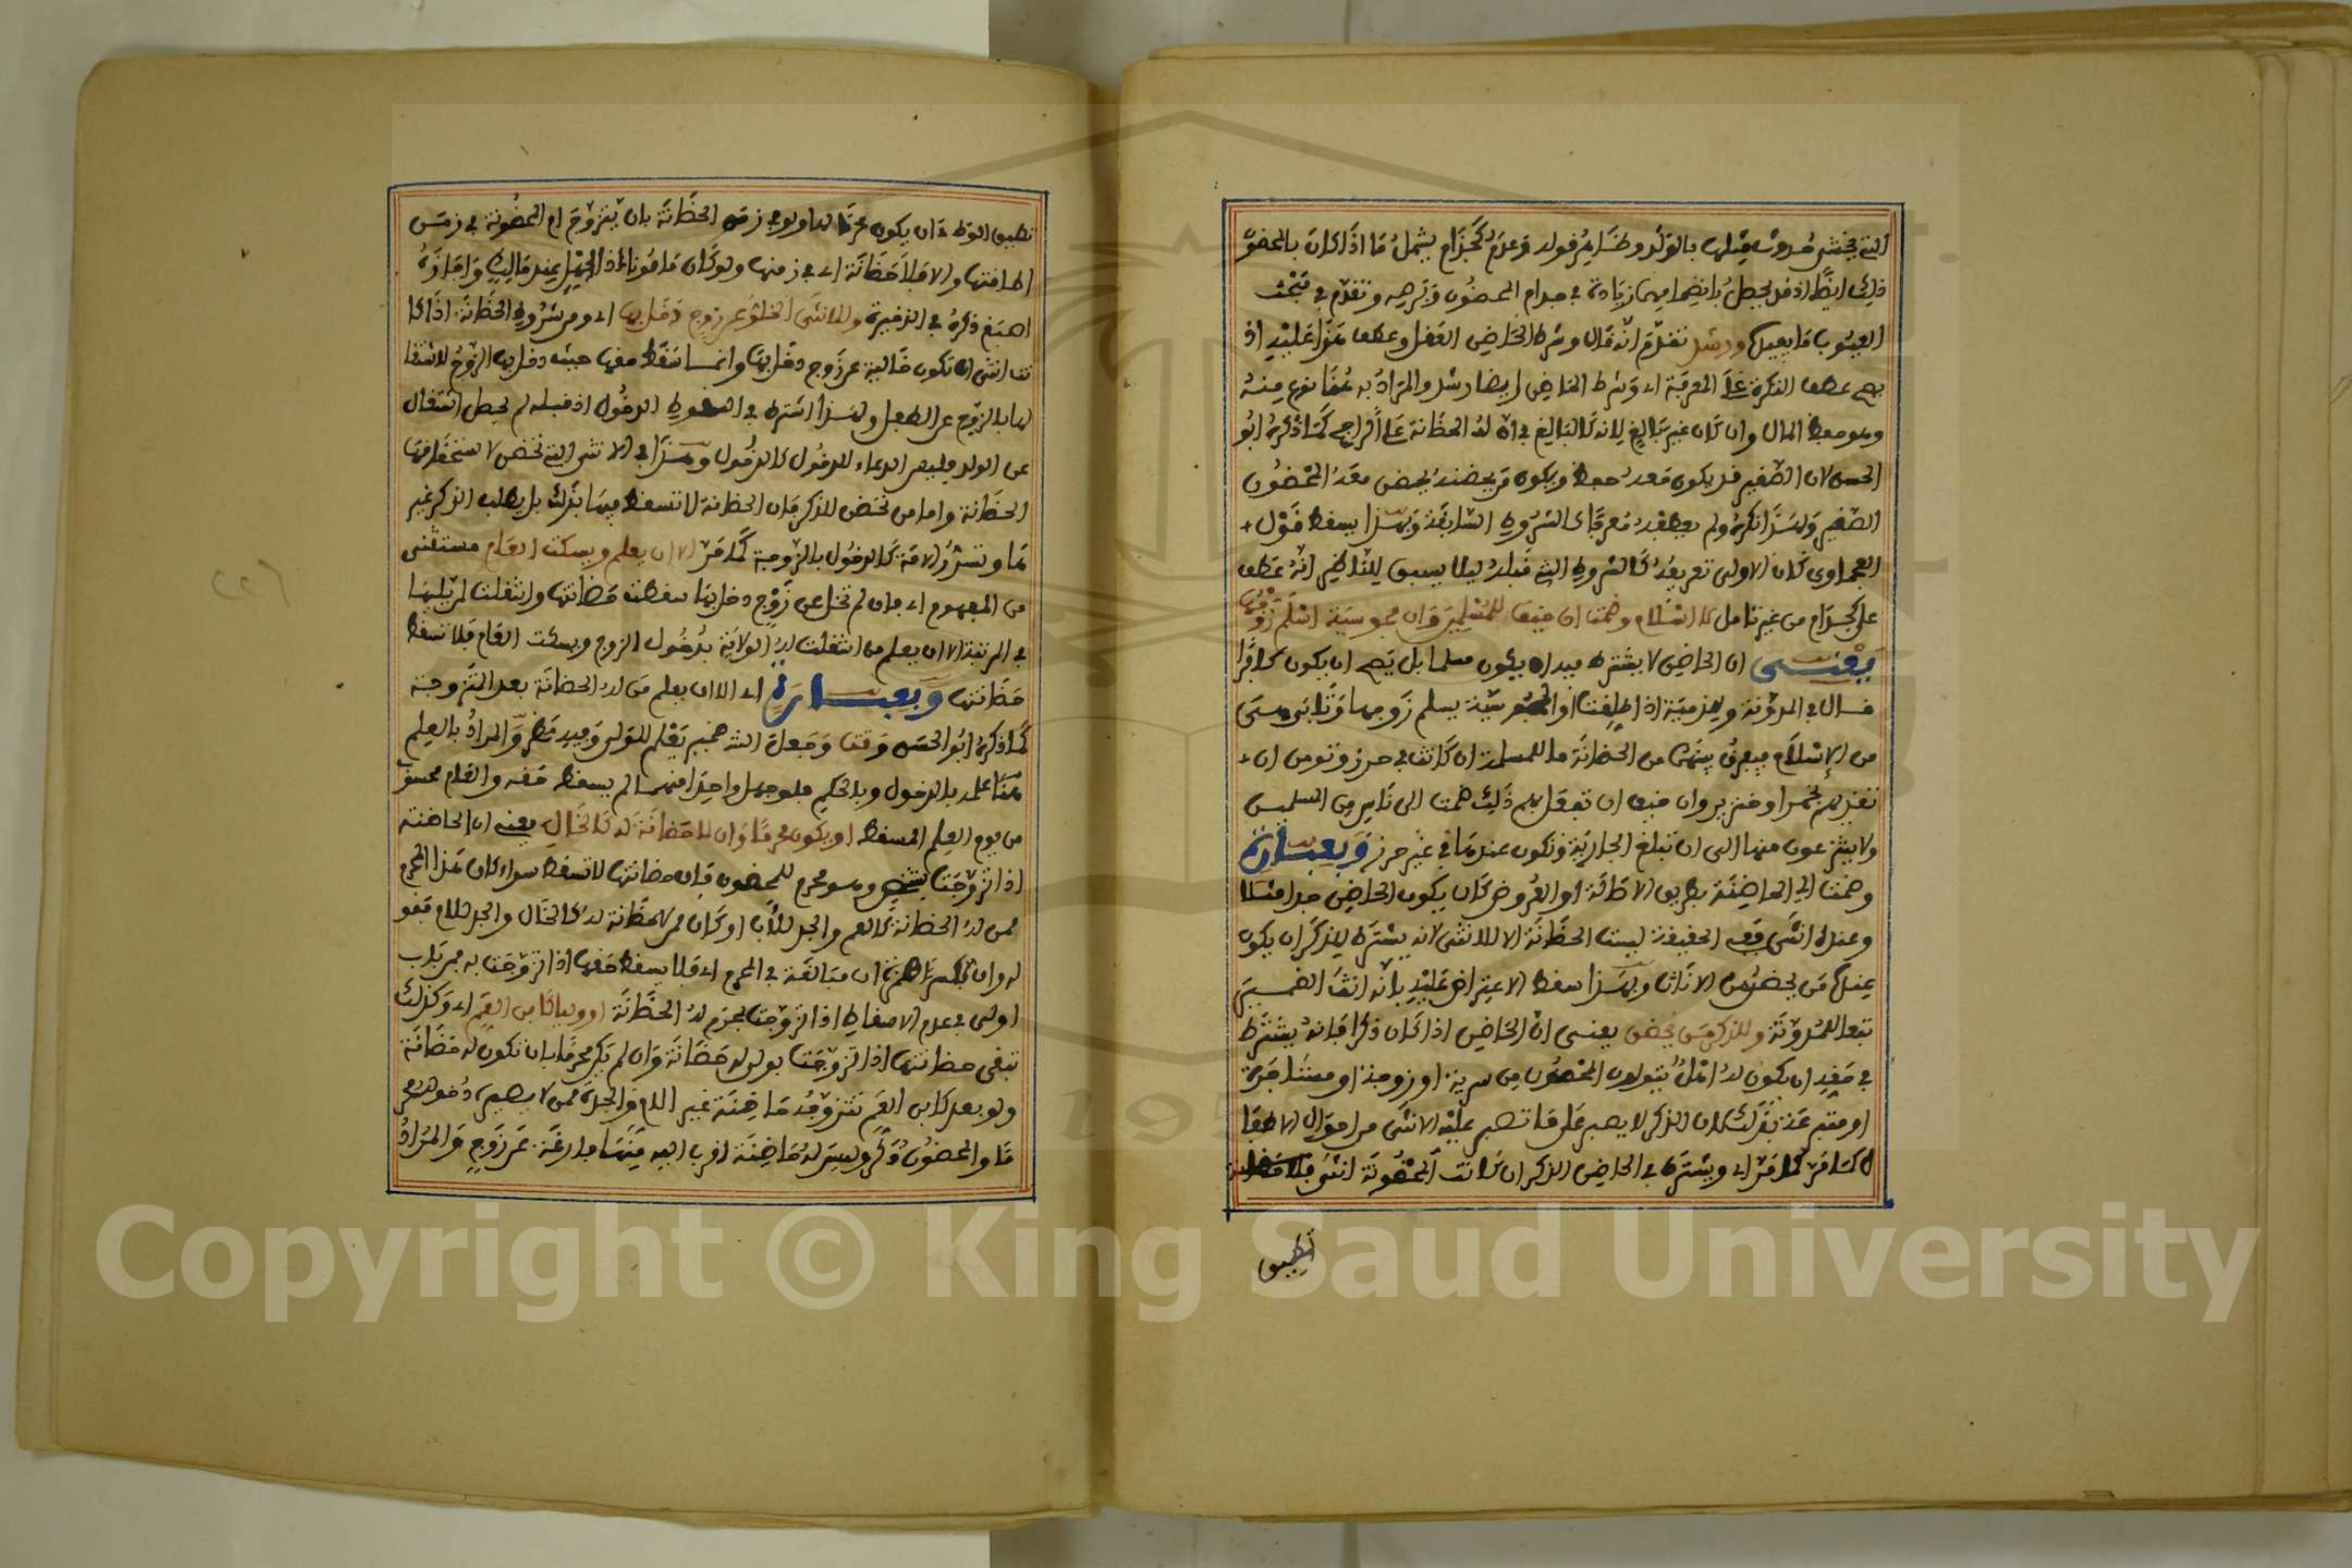 التي يخشى حدوث مثلها بالولد وظاهر قوله وعدم كجذام يشمل ما اذا كان بالمحضون
ذلك ايضا اذ قد يحصل بانضمامهما زيادة في جذام المحضون وبرصه وتقدم في مبحث
العيوب ما يفيد ورشد تقدم انه قال وشرط الحاضن العقل وعطف هذا عليه اذ
يصح عطف النكرة على المعرفة اي وشرط الحاضن ايضا رشد والمراد به هنا نوع منه
وهو حفظ المال وان كان غير بالغ لانه كالبالغ في ان له الحضانة على الراجح كما ذكره ابو
الحسن لان الصغير قد يكون معه حفظ ويكون من يحضنه يحضن معه المحضون
الصغير ولهذا نكره ولم يعطفه معرفا كالشروط السابقة وبهذا يسقط قول
العجماوي كان الاولى تعريفه كالشروط التي قبله ليلا يسبق للناظر انه عطف
على كجذام من غير تامل لا اسلام وضمت ان خيف للمسلمين وان مجوسية اسلم زوجها
يعني ان الحاضن لا يشترط فيه ان يكون مسلما بل يصح ان يكون كافرا
قال في المدونة والذمية اذا طلقت او المجوسية يسلم زوجها وتابى هي
من الاسلام فيفرق بينهما من الحضانة ما للمسلمة ان كانت في حرز وتومن ان
تغذيهم بخمر او خنزير وان خيف ان تفعل بهم ذلك ضمت الى ناس من المسلمين
ولا ينتزعون منها الى ان تبلغ الجارية وتكون عندها في غير حرز وبعبارة
وضمت اي الحاضنة بطريق الاصالة او العروض كان يكون الحاضن جدا مثلا
وعنده انثى ففي الحقيقة ليست الحضانة الا للانثى لانه يشترط للذكر ان يكون
عنده من يحضن من الاناث وبهذا سقط الاعتراض عليه بانه انث الضمير
تبعا للمدونة وللذكر من يحضن يعني ان الحاضن اذا كان ذكرا فانه يشترط
في حقه ان يكون له اهل يتولون المحضون من سرية او زوجة او مستاجرة
او متبرعة بذلك لان الذكر لا يصبر على ما تصبر عليه الانثى من احوال الاطفا
ل كما مر اي ويشترط في الحاضن الذكر ان كانت المحضونة انثى فلا
تطيق
تطيق الوطء ان يكون محرما لها ولو في زمن الحضانة بان يتزوج ام المحضونة في زمن
اطاقتها والا فلا حضانة اي في زمنها ولو كان مامونا اذ اهل عند مالك واجازه
اصبغ ذكره في الذخيرة وللانثى الخلو عن زوج دخل بها اي ومن شروط الحضانة اذا كا
نت انثى ان تكون خالية عن زوج دخل بها وانما سقط حقها حيث دخل بها الزوج لاشتغا
لها بالزوج عن الطفل ولهذا اشترط في السقوط الدخول اذ قبله لم يحصل اشتغال
عن الولد وليس الدعاء للدخول كالدخول وهذا في الانثى التي تحضن لاستحقاقها
الحضانة واما من تحضن للذكر فان الحضانة لا تسقط فيها بذلك بل يطلب الذكر غير
ها وتسرر الامة كالدخول بالزوجة كما مر الا ان يعلم ويسكت العام مستثنى
من المفهوم اي فان لم تخل عن زوج دخل بها سقطت حضانتها وانتقلت لمن يليها
في المرتبة الا ان يعلم من انتقلت له الولاية بدخول الزوج ويسكت العام فلا تسقط
حضانتها وبعبارة اي الا ان يعلم من له الحضانة بعد المتزوجة
كما ذكره ابو الحسن وتت وجعل الش ضمير يعلم للولي وفيه نظر والمراد بالعلم
هنا علمه بالدخول وبالحكم فلو جهل واحدا منهما لم يسقط حقه والعام محسوب
من يوم العلم المسقط او يكون محرما وان لا حضانة له كالخال يعني ان الحاضنة
اذا تزوجت بشخص وهو محرم للمحضون فان حضانتها لا تسقط سواء كان هذا المحرم
ممن له الحضانة كالعم والجد للاب او كان ممن لا حضانة له كالخال والجد للام فقو
له وان لا حضانة مبالغة في المحرم اي فلا يسقط حقها اذا تزوجت به من باب
اولى في عدم الاسقاط اذا تزوجت بمحرم له الحضانة او وليا كابن العم اي وكذلك
تبقى حضانتها اذا تزوجت بولي له حضانة وان لم يكن محرما بان تكون له حضانة
ولو بعد كابن العم تتزوجه حاضنة غير الام والجدة ممن لا يصير دخوله محر
ما والمحضون ذكر وليس له حاضنة اقرب اليه منها فارغة عن زوج والمراد